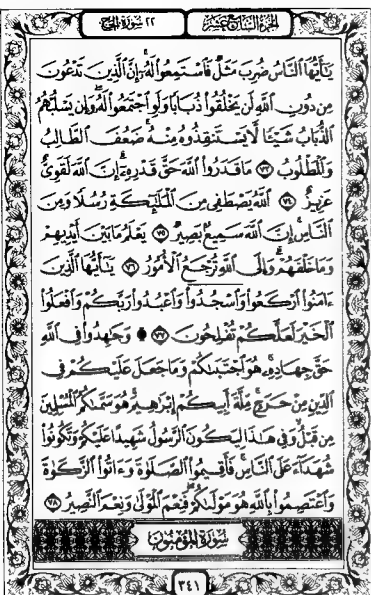 الجزء السابع عشر
٢٢ سورة الحج
يَٰٓأَيُّهَا ٱلنَّاسُ ضُرِبَ مَثَلٌ فَٱسْتَمِعُوا۟ لَهُۥٓ ۚ إِنَّ ٱلَّذِينَ تَدْعُونَ
مِن دُونِ ٱللَّهِ لَن يَخْلُقُوا۟ ذُبَابًا وَلَوِ ٱجْتَمَعُوا۟ لَهُۥ ۖ وَإِن يَسْلُبْهُمُ
ٱلذُّبَابُ شَيْـًٔا لَّا يَسْتَنقِذُوهُ مِنْهُ ۚ ضَعُفَ ٱلطَّالِبُ
وَٱلْمَطْلُوبُ ٧٣ مَا قَدَرُوا۟ ٱللَّهَ حَقَّ قَدْرِهِۦٓ ۗ إِنَّ ٱللَّهَ لَقَوِىٌّ
عَزِيزٌ ٧٤ ٱللَّهُ يَصْطَفِى مِنَ ٱلْمَلَٰٓئِكَةِ رُسُلًا وَمِنَ
ٱلنَّاسِ ۚ إِنَّ ٱللَّهَ سَمِيعٌۢ بَصِيرٌ ٧٥ يَعْلَمُ مَا بَيْنَ أَيْدِيهِمْ
وَمَا خَلْفَهُمْ ۗ وَإِلَى ٱللَّهِ تُرْجَعُ ٱلْأُمُورُ ٧٦ يَٰٓأَيُّهَا ٱلَّذِينَ
ءَامَنُوا۟ ٱرْكَعُوا۟ وَٱسْجُدُوا۟ وَٱعْبُدُوا۟ رَبَّكُمْ وَٱفْعَلُوا۟
ٱلْخَيْرَ لَعَلَّكُمْ تُفْلِحُونَ ٧٧ وَجَٰهِدُوا۟ فِى ٱللَّهِ
حَقَّ جِهَادِهِۦ ۚ هُوَ ٱجْتَبَىٰكُمْ وَمَا جَعَلَ عَلَيْكُمْ فِى
ٱلدِّينِ مِنْ حَرَجٍ ۚ مِّلَّةَ أَبِيكُمْ إِبْرَٰهِيمَ ۚ هُوَ سَمَّىٰكُمُ ٱلْمُسْلِمِينَ
مِن قَبْلُ وَفِى هَٰذَا لِيَكُونَ ٱلرَّسُولُ شَهِيدًا عَلَيْكُمْ وَتَكُونُوا۟
شُهَدَآءَ عَلَى ٱلنَّاسِ ۚ فَأَقِيمُوا۟ ٱلصَّلَوٰةَ وَءَاتُوا۟ ٱلزَّكَوٰةَ
وَٱعْتَصِمُوا۟ بِٱللَّهِ هُوَ مَوْلَىٰكُمْ ۖ فَنِعْمَ ٱلْمَوْلَىٰ وَنِعْمَ ٱلنَّصِيرُ ٧٨
سورة المؤمنون
٣٤١